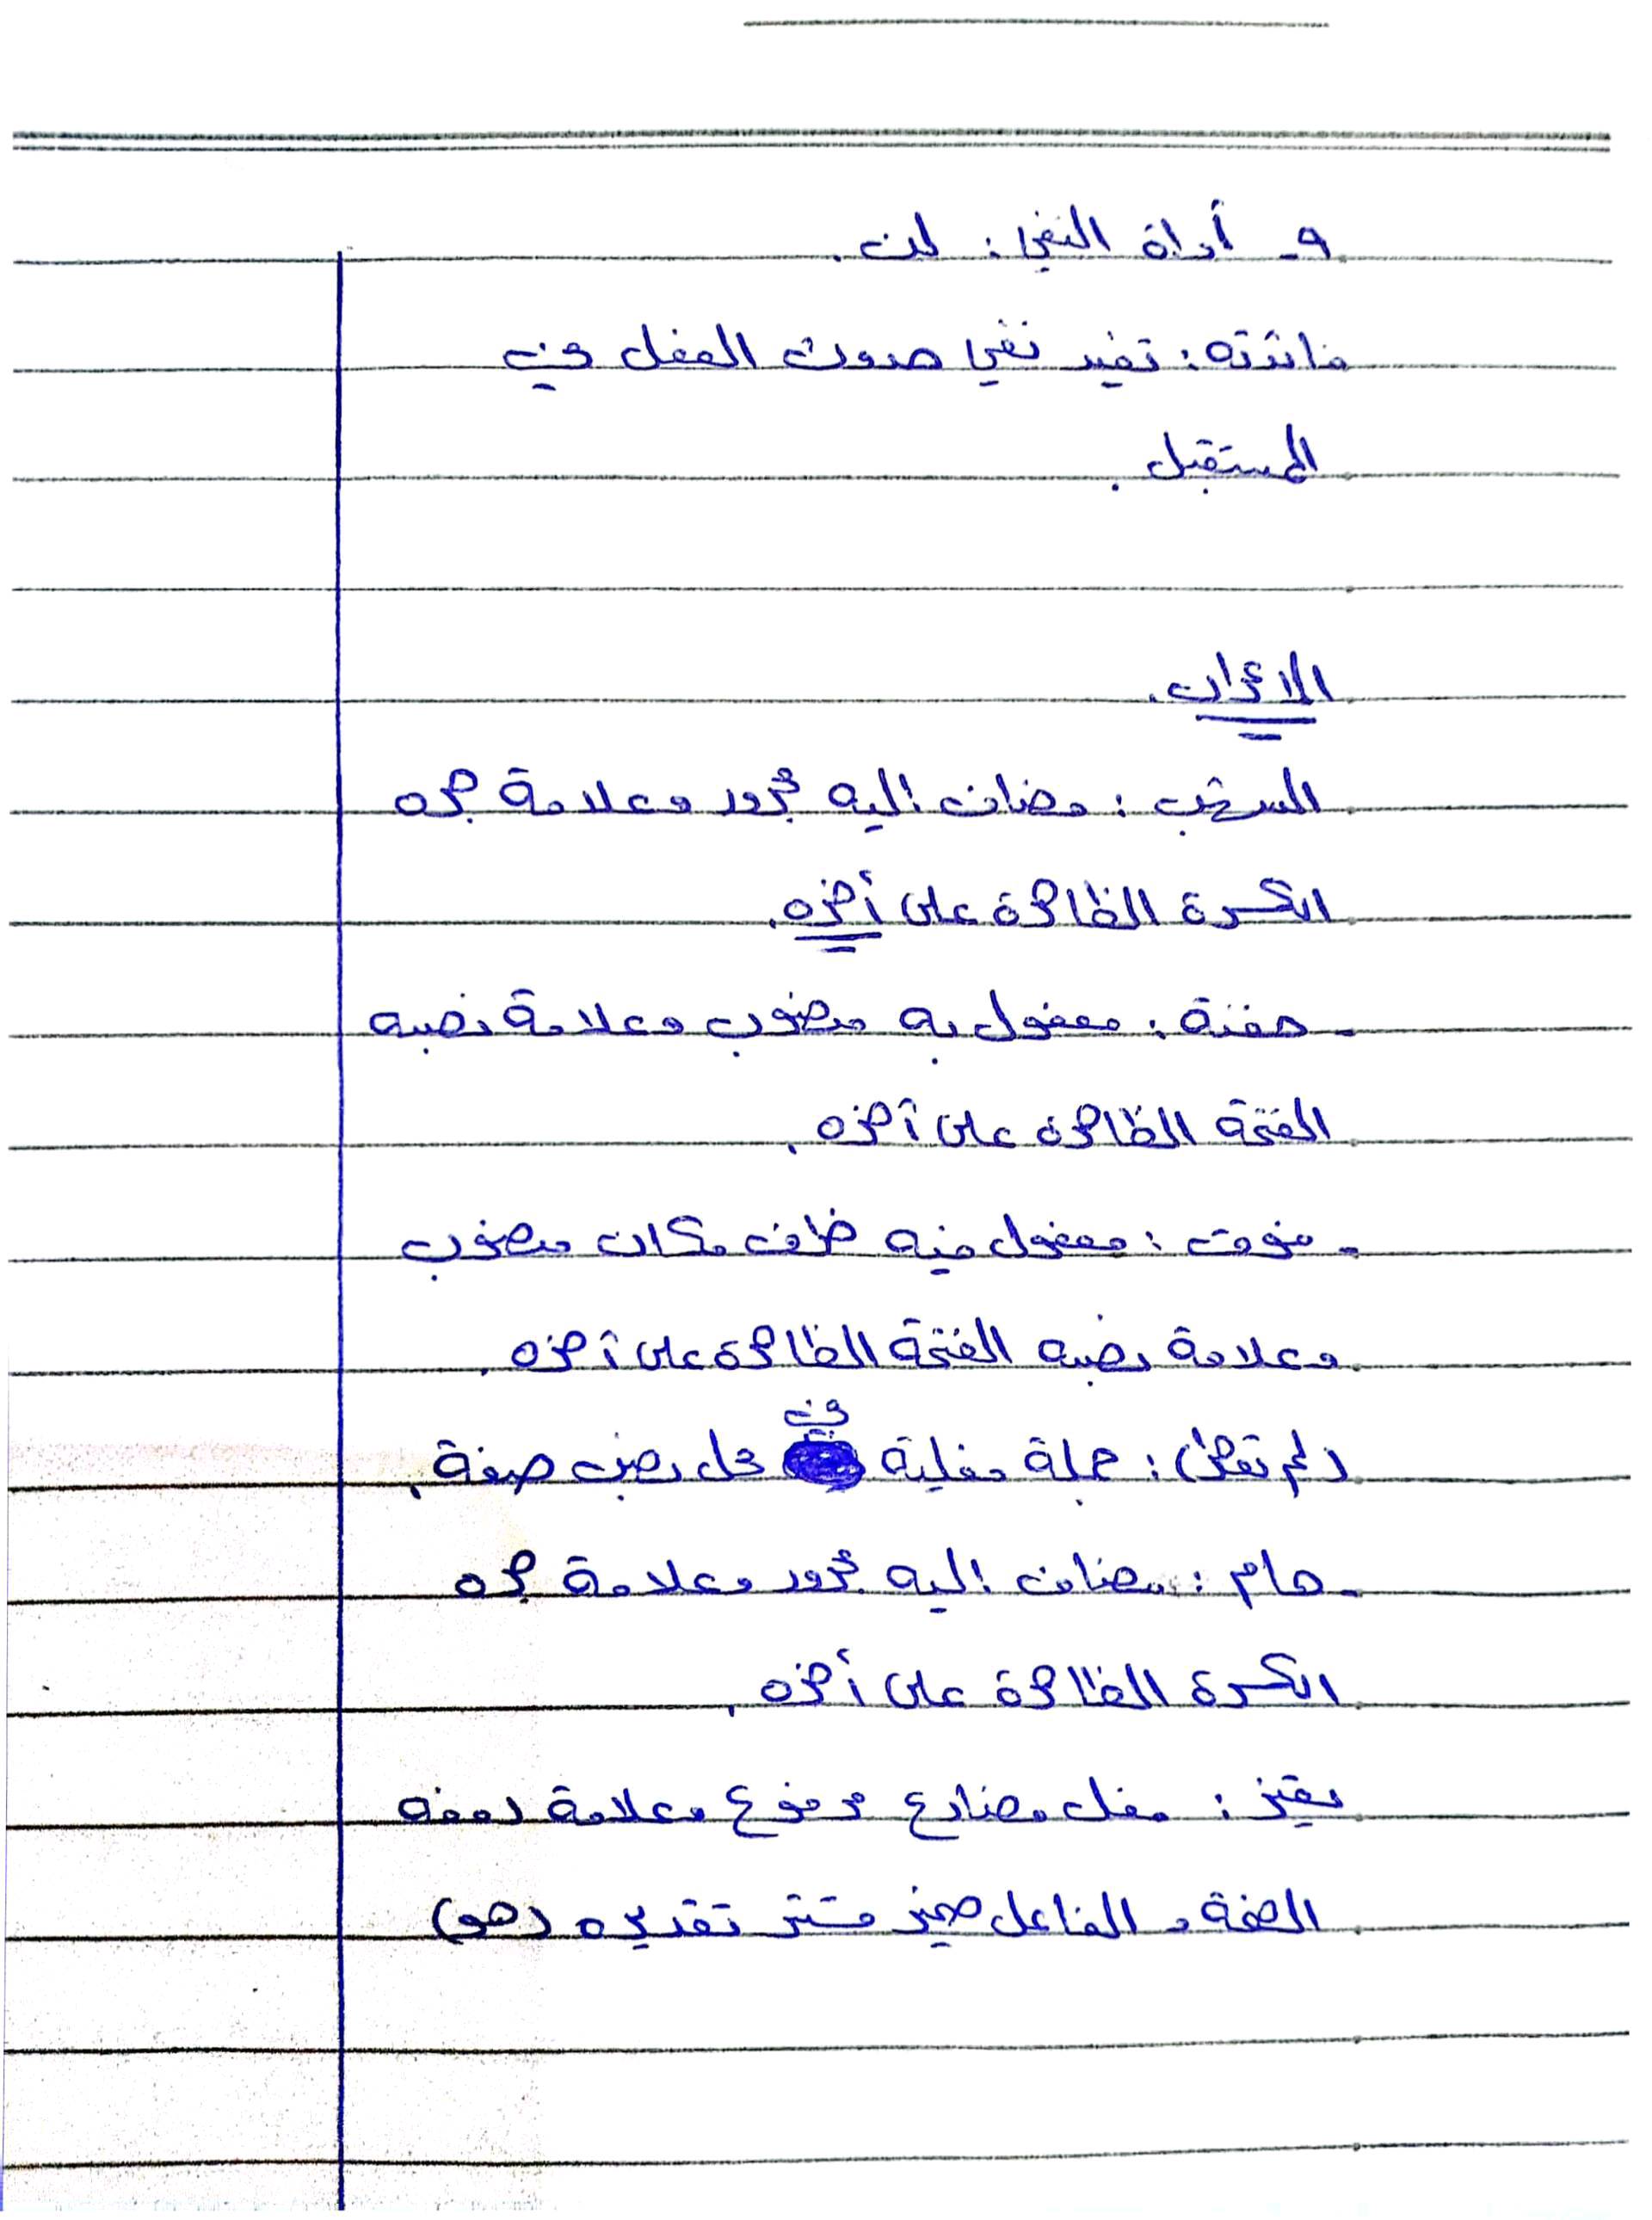 ٩- أداة النفي : لن .
فائدته : تفيد نفي حدوث الفعل في
المستقبل .
الإعراب .
السحب : مضاف إليه مجرور وعلامة جره
الكسرة الظاهرة على أخره .
- حفنة : مفعول به منصوب وعلامة نصبه
الفتحة الظاهرة على آخره .
- فوق : مفعول فيه ظرف مكان منصوب
وعلامة نصبه الفتحة الظاهرة على آخره .
(لم تعطر) : جملة فعلية في محل نصب صفة .
- حام : مضاف إليه مجرور وعلامة جره
الكسرة الظاهرة على أخره .
يقفز : فعل مضارع مرفوع وعلامة رفعه
الضمة و الفاعل ضمير مستتر تقديره (هو)